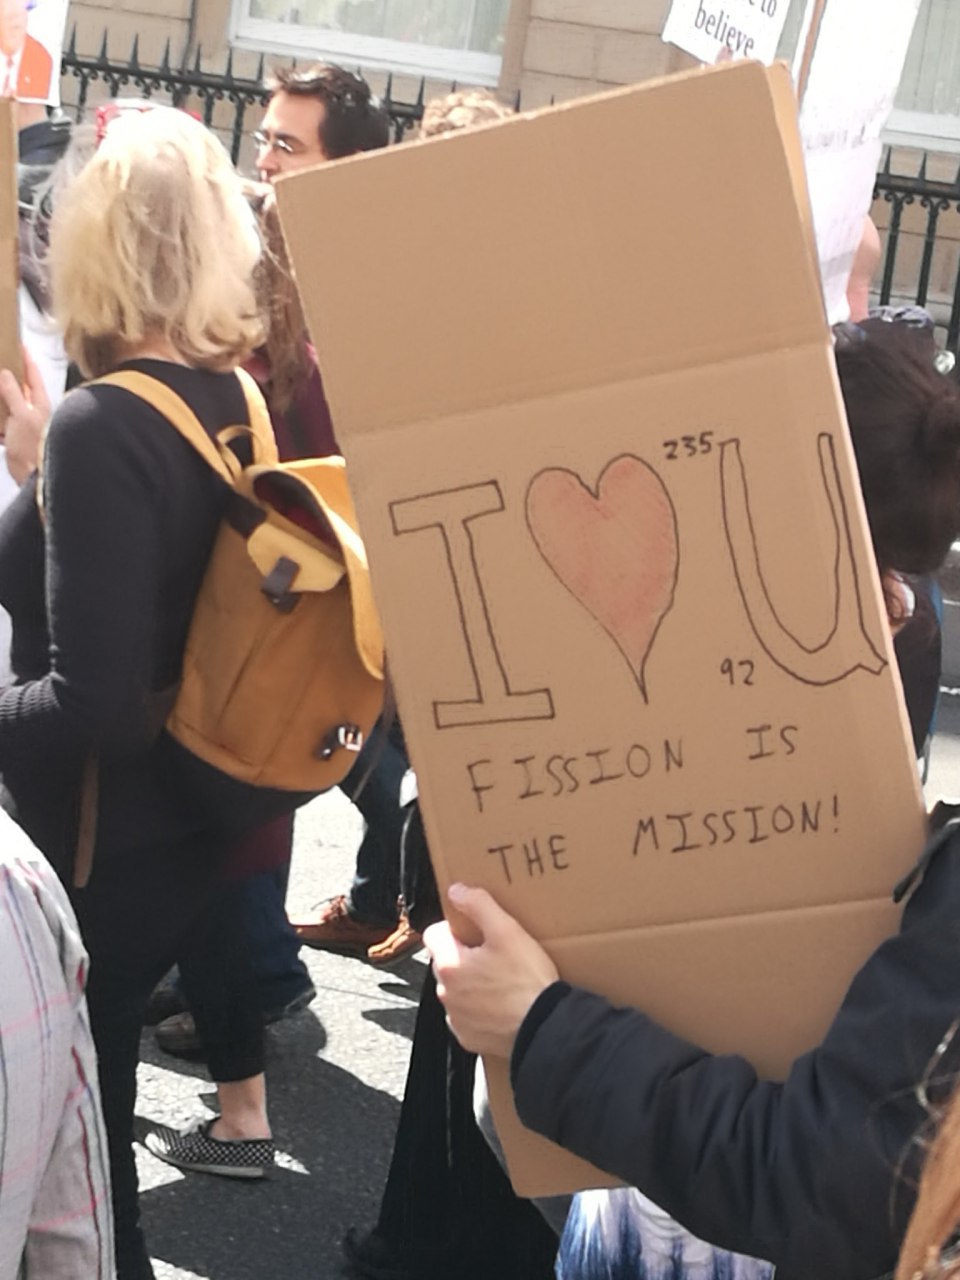 to
believe
I ♥ 235 92 U
FISSION IS
THE MISSION!